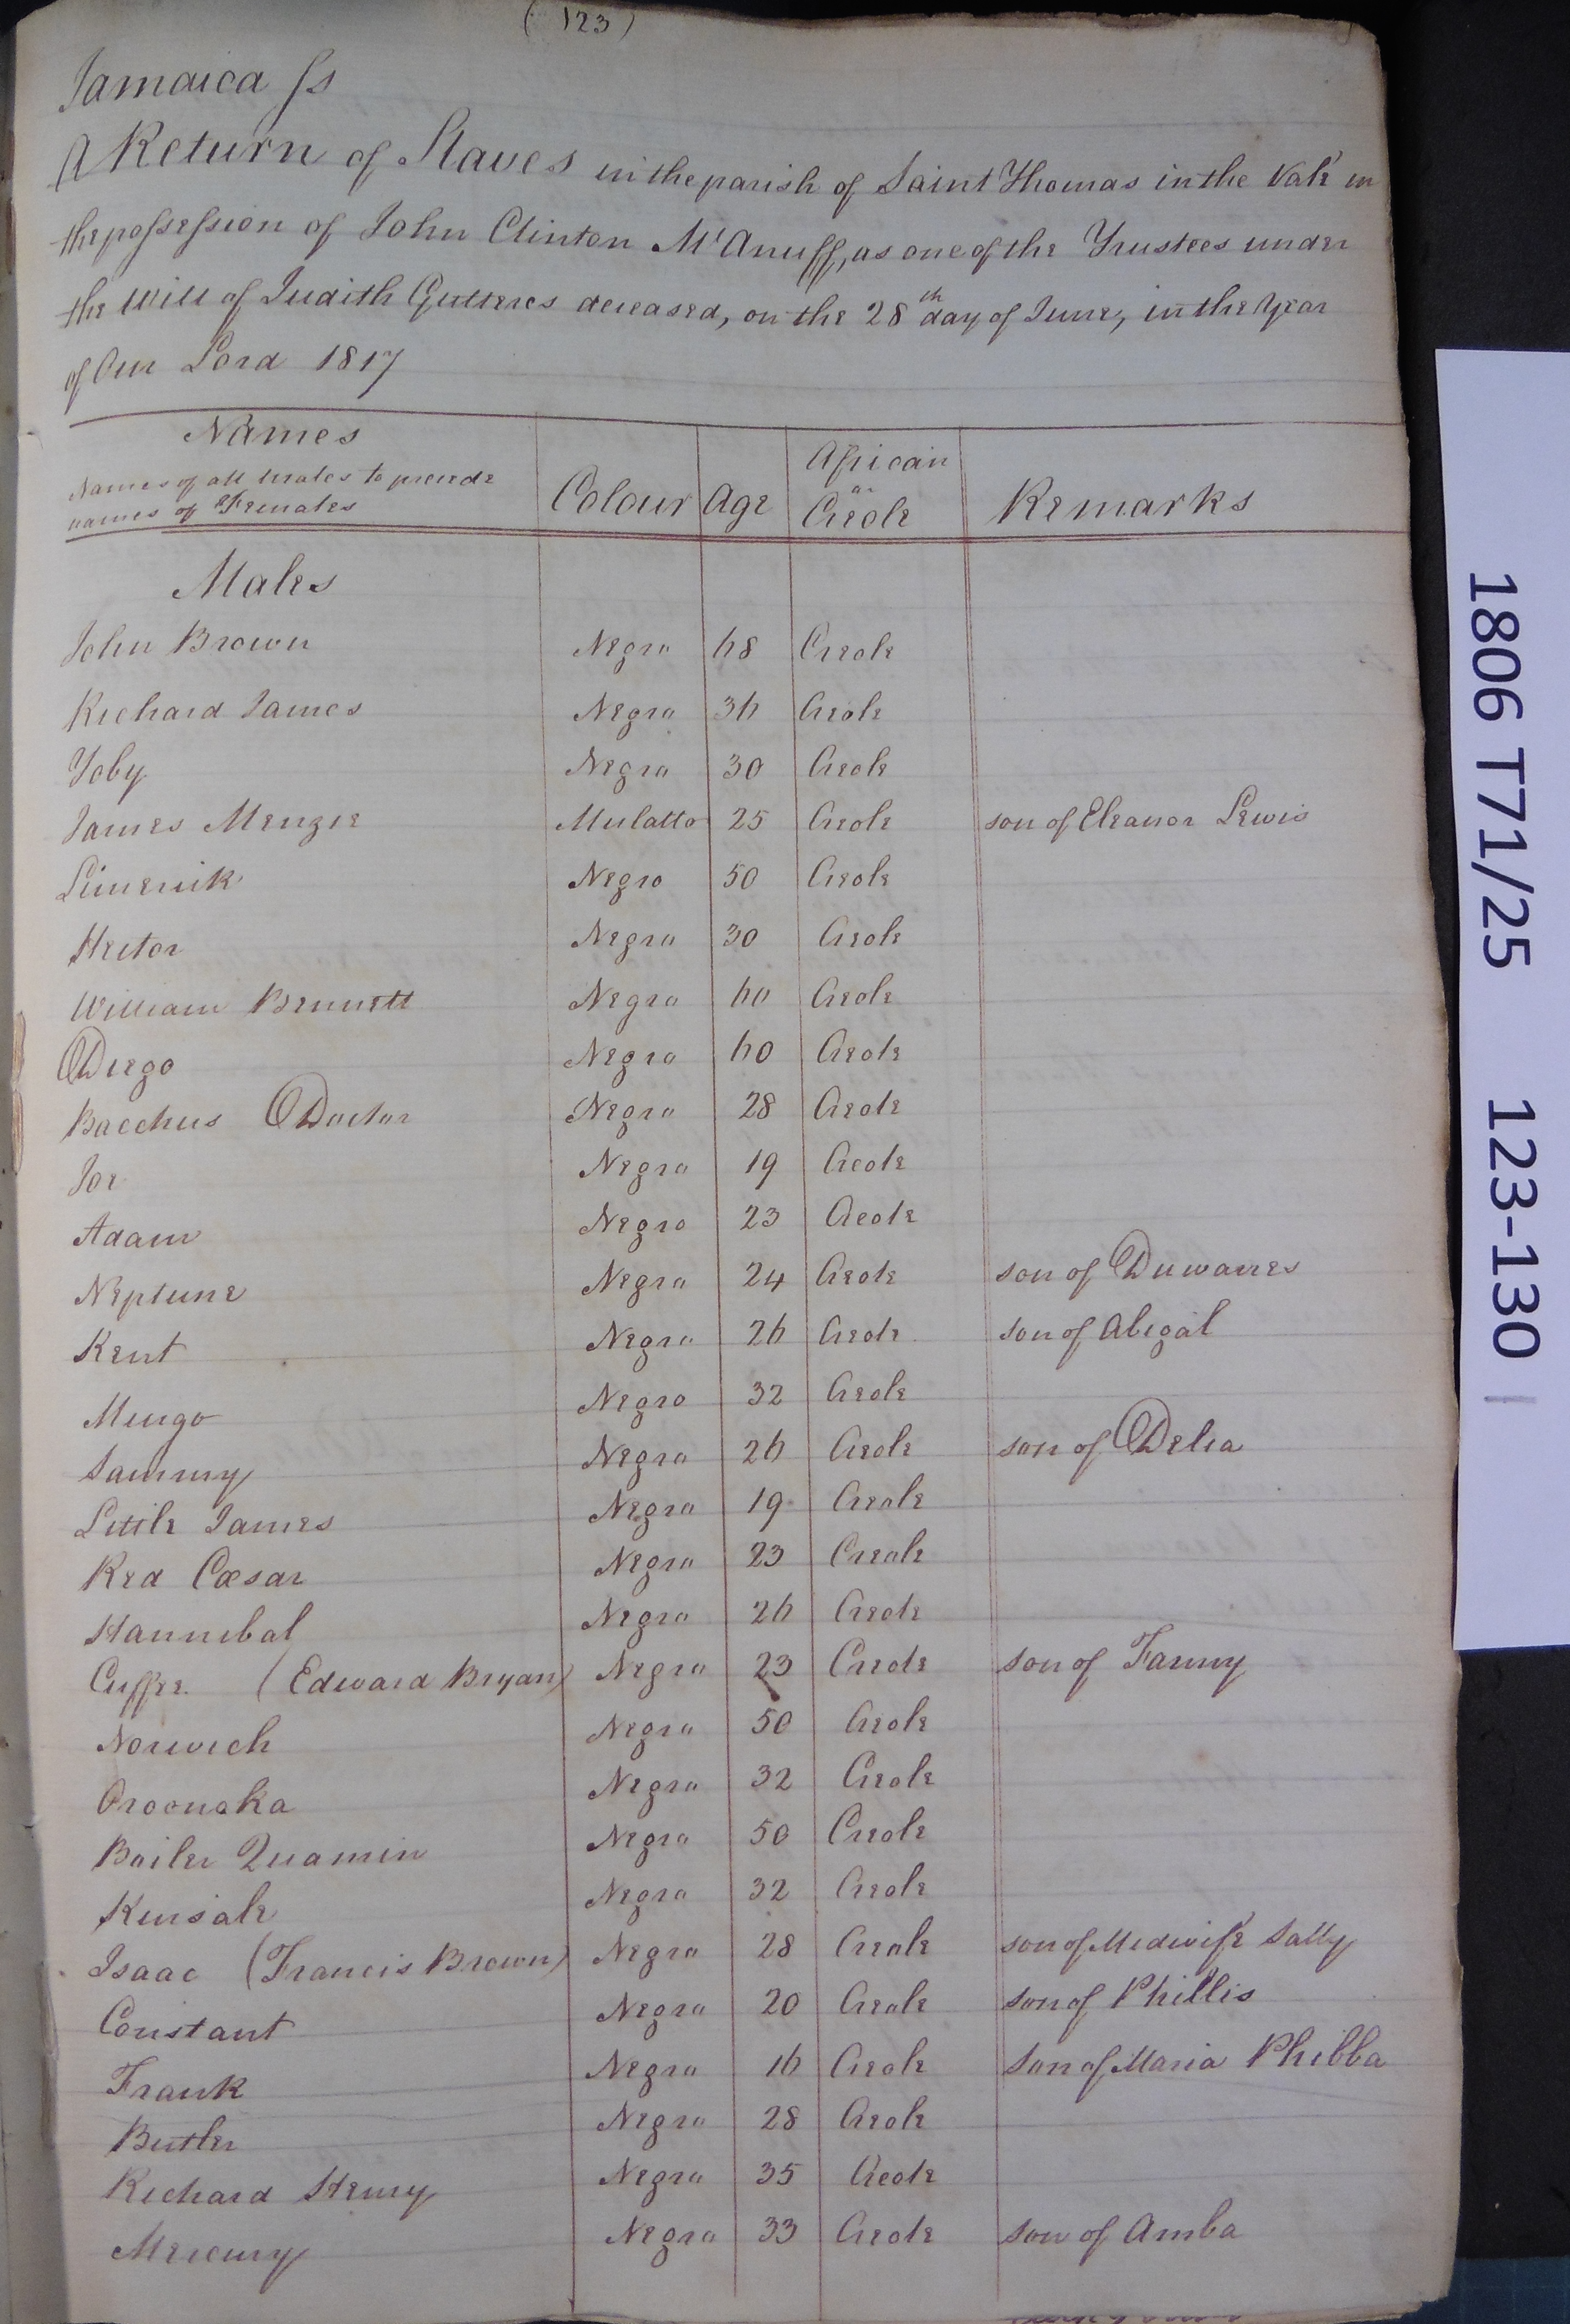 ( 123 )
Jamaica ss
A Return of Slaves in the parish of Saint Thomas in the Vale in
the possession of John Clinton McAnuff, as one of the Trustees under
the Will of Judith Gutteres deceased, on the 28th day of June, in the Year
of Our Lord 1817
Names
Names of all Males to precede
names of Females
Colour Age African or Creole Remarks
Males
John Brown Negro 68 Creole
Richard James Negro 36 Creole
Toby Negro 30 Creole
James Menzie Mulatto 25 Creole son of Eleanor Lewis
Limerick Negro 50 Creole
Hector Negro 30 Creole
William Bennett Negro 60 Creole
Diego Negro 60 Creole
Bacchus Doctor Negro 28 Creole
Joe Negro 19 Creole
Adam Negro 23 Creole
Neptune Negro 24 Creole son of Duwarres
Kent Negro 26 Creole son of Abigal
Mingo Negro 32 Creole
Sammy Negro 26 Creole son of Delia
Little James Negro 19 Creole
Red Cæsar Negro 23 Creole
Hannibal Negro 26 Creole
Cuffee (Edward Bryan) Negro 23 Creole son of Fanny
Norwich Negro 50 Creole
Oroonoka Negro 32 Creole
Boiler Quamin Negro 50 Creole
Kinsale Negro 32 Creole
Isaac (Francis Brown) Negro 28 Creole son of Midwife Sally
Constant Negro 20 Creole son of Phillis
Frank Negro 16 Creole son of Maria Phibba
Butler Negro 28 Creole
Richard Henry Negro 35 Creole
Mercury Negro 33 Creole son of Amba
1806 T71/25 123-130